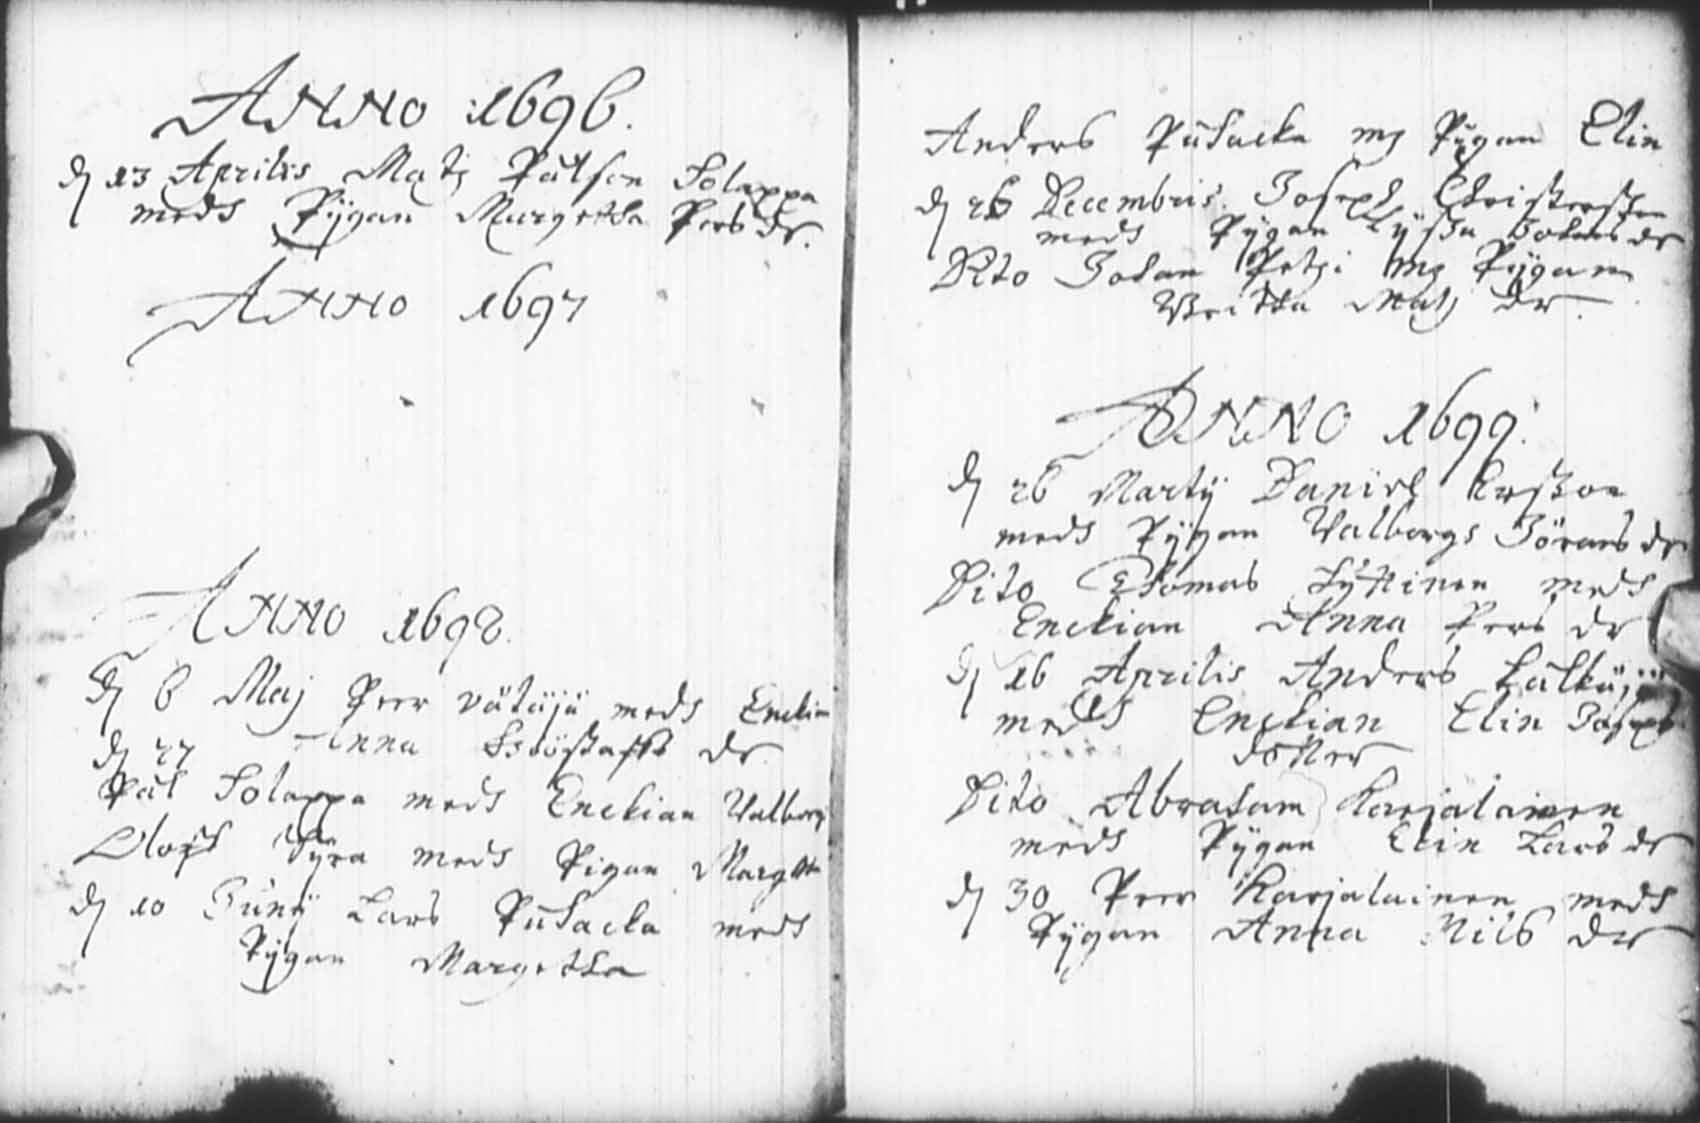 ANNO 1696.
d 13 Aprilis Matz Pålson Solappa
meds Pÿgan Margetha Pers dr.
ANNO 1697
ANNO 1698.
d 8 Maj Peer meds Enckian
d 27 Anna dr
Pål Solappa meds Enckian Valborg
Oloff meds Pigan Margetta
d 10 Junÿ Lars Puhacka meds
Pÿgan Margetha
Anders Puhacka mz Pÿgan Elin
d 26 Decembris. Joseph Christersson
meds Pÿgan Johans dr
Dito Johan mz Pÿgan
Britha Matz dr.
ANNO 1699.
d 26 Martÿ Daniel Erßon
meds Pÿgan Valborgs Jörans dr
Dito Thomas meds
Enckian Anna Pers dr
d 16 Aprilis Anders
meds Enckian Elin Joseps
dotter
Dito Abraham Karjalainen
meds Pÿgan Elin Lars dr
d 30 Peer Karjalainen meds
Pÿgan Anna Nils dr